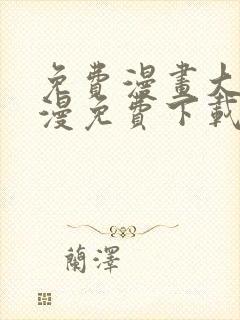 免費漫畫大
漫免費下載
蘭澤